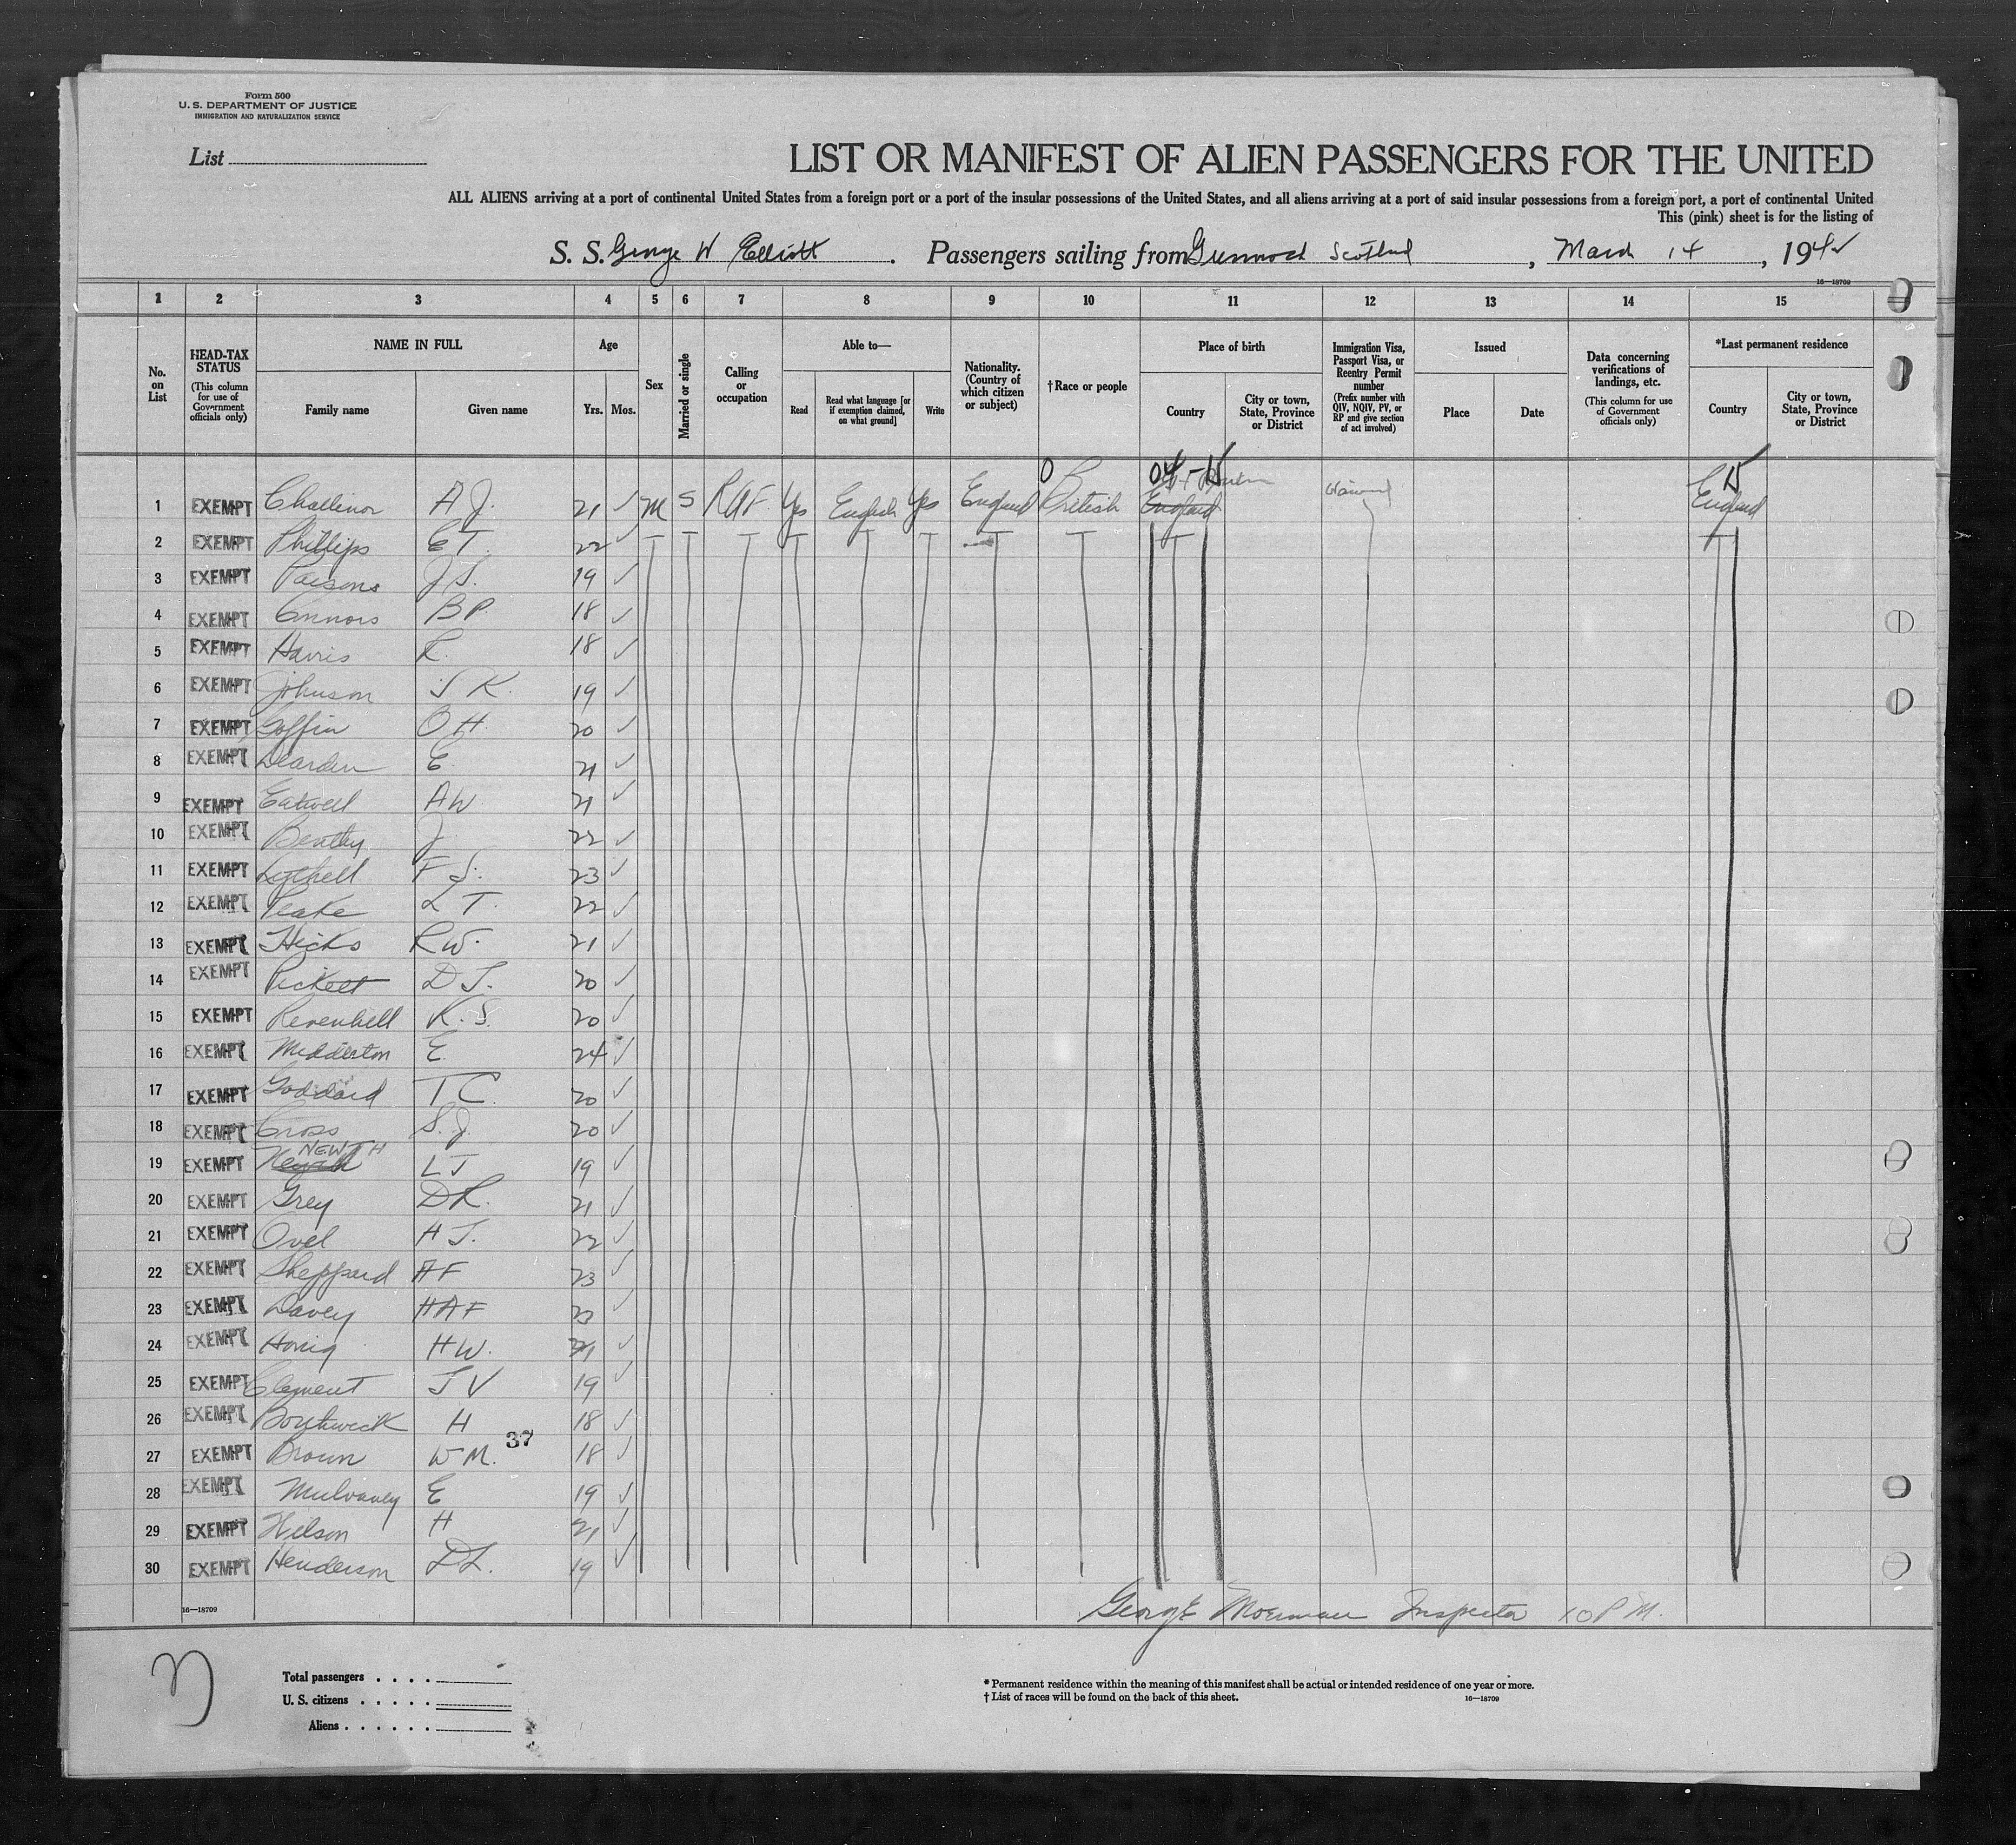 Form 500
U. S. DEPARTMENT OF JUSTICE
IMMIGRATION AND NATURALIZATION SERVICE
List
LIST OR MANIFEST OF ALIEN PASSENGERS FOR THE UNITED
ALL ALIENS arriving at a port of continental United States from a foreign port or a port of the insular possessions of the United States, and all aliens arriving at a port of said insular possessions from a foreign port, a port of continental United
This (pink) sheet is for the listing of
S. S. George W Elliott. Passengers sailing from Scotland, March 14, 194
16—18709
1 2 3 4 5 6 7 8 9 10 11 12 13 14 15
No. on List
HEAD-TAX STATUS
(This column for use of Government officials only)
NAME IN FULL
Family name Given name
Age
Yrs. Mos.
Sex
Married or single
Calling or occupation
Able to—
Read
Read what language [or if exemption claimed, on what ground]
Write
Nationality. (Country of which citizen or subject)
†Race or people
Place of birth
Country
City or town, State, Province or District
Immigration Visa, Passport Visa, or Reentry Permit number
(Prefix number with QIV, NQIV, PV, or RP and give section of act involved)
Issued
Place Date
Data concerning verifications of landings, etc.
(This column for use of Government officials only)
*Last permanent residence
Country
City or town, State, Province or District
1 EXEMPT Challinor A J. 21 ✓ M S RAF Yes English Yes England British England Waived England
2 EXEMPT Phillips E T. 22 ✓
3 EXEMPT Parsons J S. 19 ✓
4 EXEMPT Connors B P. 18 ✓
5 EXEMPT Harris R. 18 ✓
6 EXEMPT Johnson S K. 19 ✓
7 EXEMPT Goffin O H. 20 ✓
8 EXEMPT Dearden E. 21 ✓
9 EXEMPT Eatwell A W 21 ✓
10 EXEMPT Beatty J. 22 ✓
11 EXEMPT Lythell F S. 23 ✓
12 EXEMPT Peake L T. 22 ✓
13 EXEMPT Hicks R W. 21 ✓
14 EXEMPT Pickett D J. 20 ✓
15 EXEMPT Revenhell K. S. 20 ✓
16 EXEMPT Middleton E. 24 ✓
17 EXEMPT Goddard T C. 20 ✓
18 EXEMPT Cross S. J. 20 ✓
19 EXEMPT NEWTH L J 19 ✓
20 EXEMPT Grey D R. 21 ✓
21 EXEMPT Ovel H J. 22 ✓
22 EXEMPT Sheppard A F 23 ✓
23 EXEMPT Davey H A F 23 ✓
24 EXEMPT Honig H W. 21 ✓
25 EXEMPT Clement J V 19 ✓
26 EXEMPT Borthwick H 18 ✓
37
27 EXEMPT Brown W M. 18 ✓
28 EXEMPT Mulvaney E 19 ✓
29 EXEMPT Wilson H 21 ✓
30 EXEMPT Henderson D L. 19 ✓
16—18709
George Moerman Inspector 10 P M.
Total passengers
U. S. citizens
Aliens
* Permanent residence within the meaning of this manifest shall be actual or intended residence of one year or more.
† List of races will be found on the back of this sheet.
16—18709